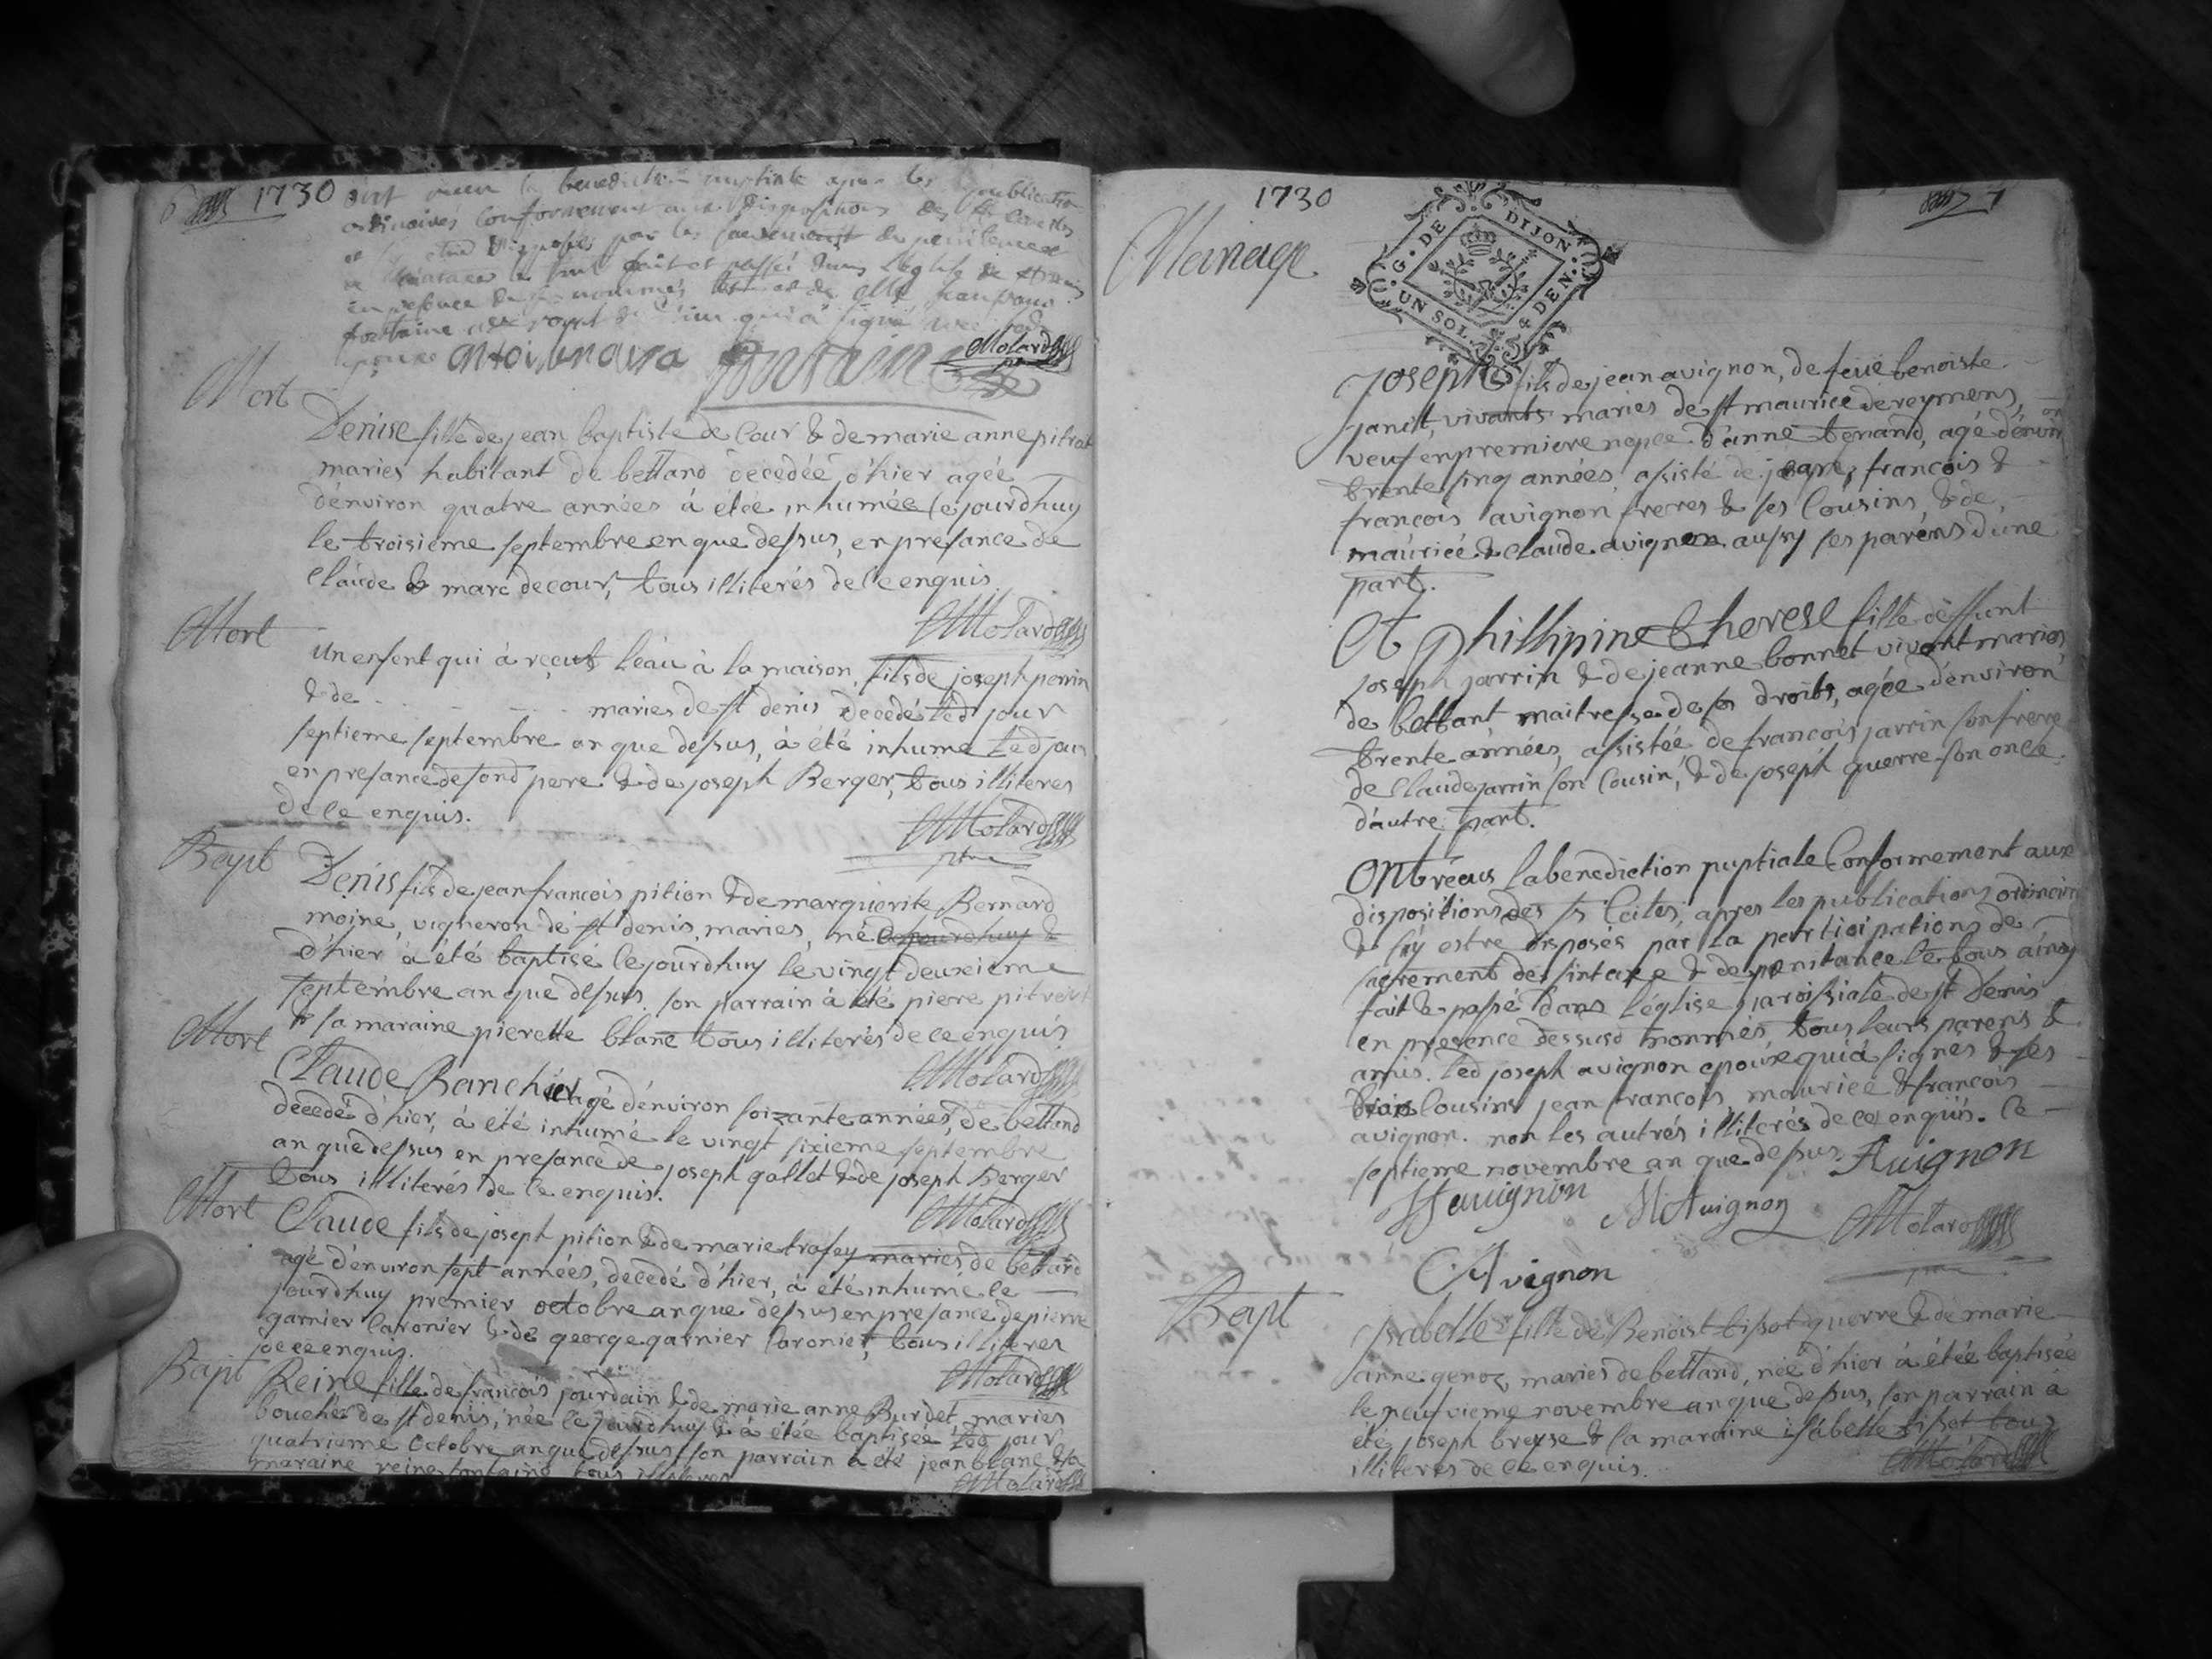 6 1730 ont receu la benediction nuptiale apres les publications
ordinaires conformement aux dispositions des
disposés par les sacrements de penitence
fait et passé dans l'église de st denis
en presence des nommés
fontaine
antoi Fontain Molard
Mort
Denise fille de jean baptiste de Cour & de marie anne pitrat
maries habitant de bettand decedéé d'hier agéé
d'énviron quatre années à étéé inhumée cejourdhuy
le troisieme septembre en que dessus, en presance de
Claude & marc decour, tous illiterés de ce enquis
Molard
Mort
un enfent qui à reçeut l'eau à la maison, fils de joseph perrin
& de . . . . . . maries de st denis decedés led jour
septieme septembre an que dessus, à été inhumé led jour
en presance de sond pere & de joseph Berger, tous illiteres
de ce enquis.
Molard
ptre
Bapt
Denis fils de jean francois pition & de marguerite Bernard
moine, vigneron de st denis, maries, né cejourdhuy &
d'hier à été baptisé cejourdhuy le vingt deuxieme
septembre an que dessus. son parrain à été piere pitrat
& sa maraine pierette blanc tous illiterés de ce enquis
Molard
Mort
Claude Banchier agé d'énviron soizante années, de bettand
decedé d'hier, à été inhumé le vingt sixieme septembre
an que dessus en presance de joseph gallet & de joseph Berger
tous illiterés de ce enquis.
Molard
Mort
Claude fils de joseph pition & de marie trafey maries de bettand
agé d'énviron sept années, decedé d'hier, à été inhumé le
jourdhuy premier octobre an que dessus en presance de pierre
garnier Caronier & de george garnier Caronier, tous illiteres
de ce enquis.
Molard
Bapt
Reine fille de francois jourdain & de marie anne Burdet maries
bouché de st denis, née le jourdhuy & à étéé baptiséé led jour
quatrieme octobre an que dessus son parrain à été jean blanc & sa
maraine reine fontaine tous illiteres
Molard
1730 7
Mariage
G. DE DIJON
UN SOL. 4 DEN.
Joseph fils de jean avignon, de feue benoiste
janit, vivants maries de st maurice de reymens,
veuf en premiere nopce d'anne tenand, agé d'énviron
trente sinq années, assisté de jean, francois &
francois avignon freres & ses Cousins, & de
mauricé & claude avignon aussy ses parens d'une
part.
Et Phillipine Therese fille deffunt
joseph jarrin & de jeanne bonnet vivant maries
de bettant maitresse de ses droits, agée d'énviron
trente années, assistéé de francois jarrin son frere
de Claude jarrin son Cousin, & de joséph guerre son oncle
d'autre part.
Ont réçus la benediction nuptiale Conformement aux
dispositions des sts Cciles, apres les publications ordinaires
& s'y estre disposés par la participations de
sacrements de & de penitance le tous ainsy
fait & passé dans l'église paroissiale de st Denis
en presence des susd nommés tous leurs parens &
amis. led joseph avignon epoux qui à signés & ses
trois Cousins jean francois, mauricé & francois
avignon. non les autrés illiterés de ce enquis. ce
septieme novembre an que dessus. Auignon
auignon M Auignon
Molard
Avignon
Bapt
Isabelle fille de Benoist tissot guerre & de marie
anne genoz, maries de bettand, née d'hier à étéé baptisée
le neufvieme novembre an que dessus, son parrain a
été joseph breyse & la maraine isabelle tissot, tous
illiterés de ce enquis.
Molard